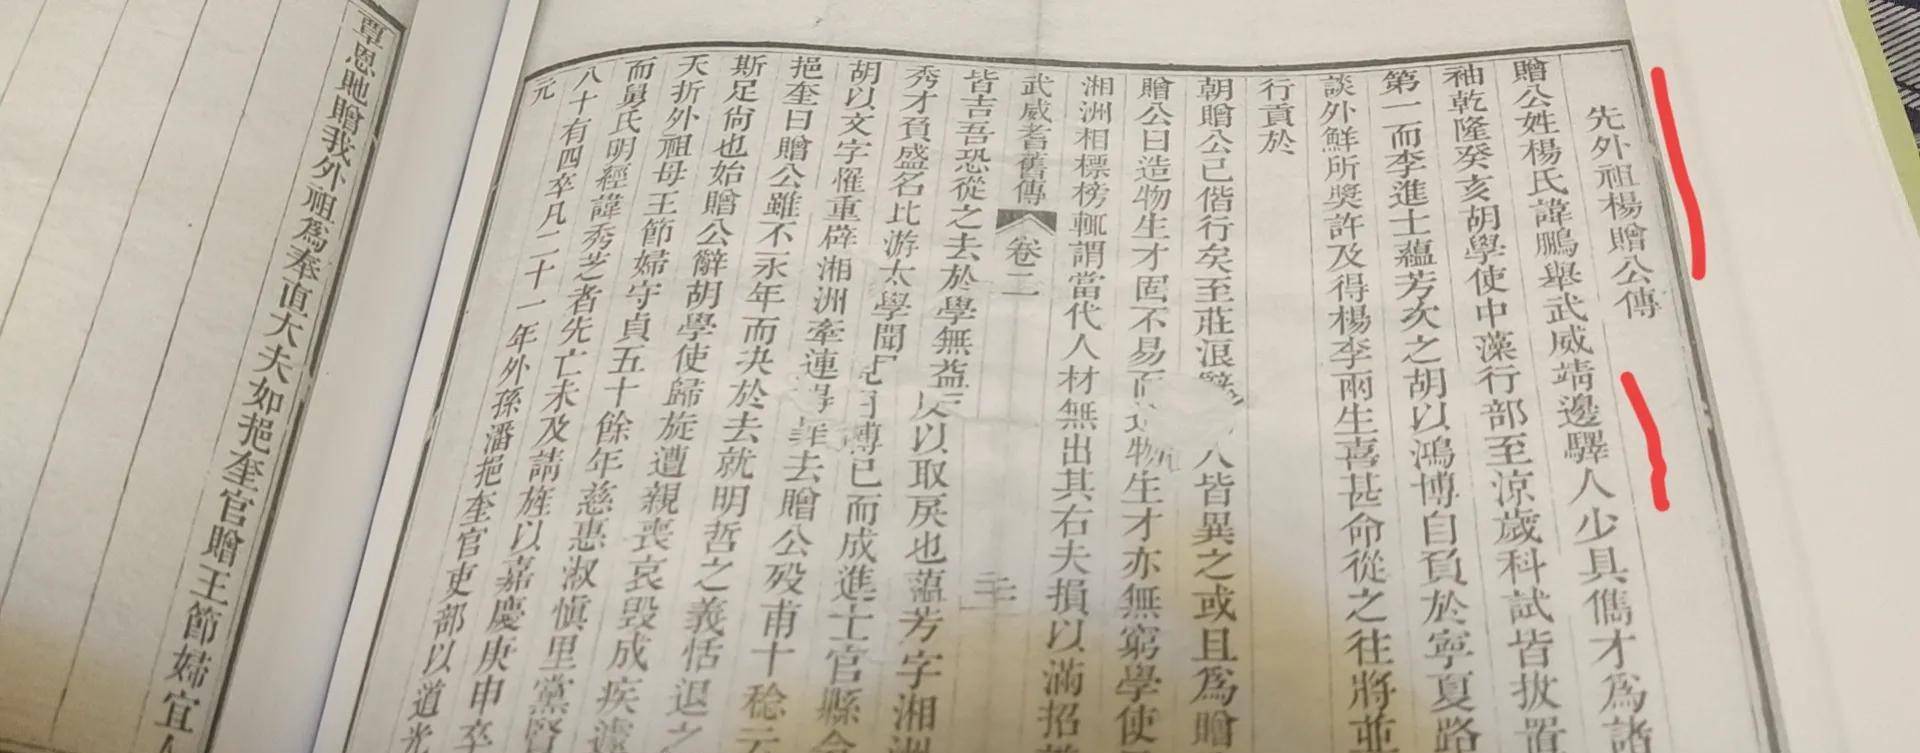 先外祖楊贈公傳
贈公姓楊氏諱鵬舉武威靖邊驛人少具儁才為諸
袖乾隆癸亥胡學使中藻行部至涼歲科試皆拔置
第一而李進士蘊芳次之胡以鴻博自負於寧夏路
談外鮮所獎許及得楊李兩生喜甚命從之往將並
行貢於
朝贈公已偕行矣至莊浪 人皆異之或且為贈
贈公曰造物生才固不易而造物生才亦無窮學使
湘洲相標榜輒謂當代人材無出其右夫損以滿招
武威耆舊傳 卷二
皆吉吾恐從之去於學無益 以取戾也蘊芳字湘
秀才負盛名比游太學聞 博已而成進士官縣
胡以文字罹重辟湘洲牽連 去贈公歿甫十稔
挹奎曰贈公雖不永年而決於去就明哲之義恬退之
斯足尚也始贈公辭胡學使歸旋遭親喪哀毀成疾
夭折外祖母王節婦守貞五十餘年慈惠淑慎里黨賢
而舅氏明經諱秀芝者先亡未及請旌以嘉慶庚申卒
八十有四卒凡二十一年外孫潘挹奎官吏部以道光
元
覃恩貤贈我外祖為奉直大夫如挹奎官贈王節婦宜